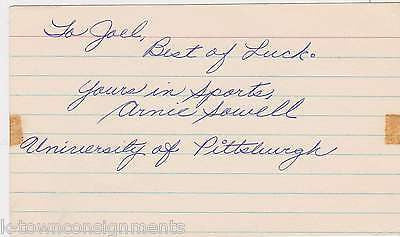 To Joel,
Best of Luck.
Yours in Sports,
Arnie Sowell
University of Pittsburgh
k-townconsignments